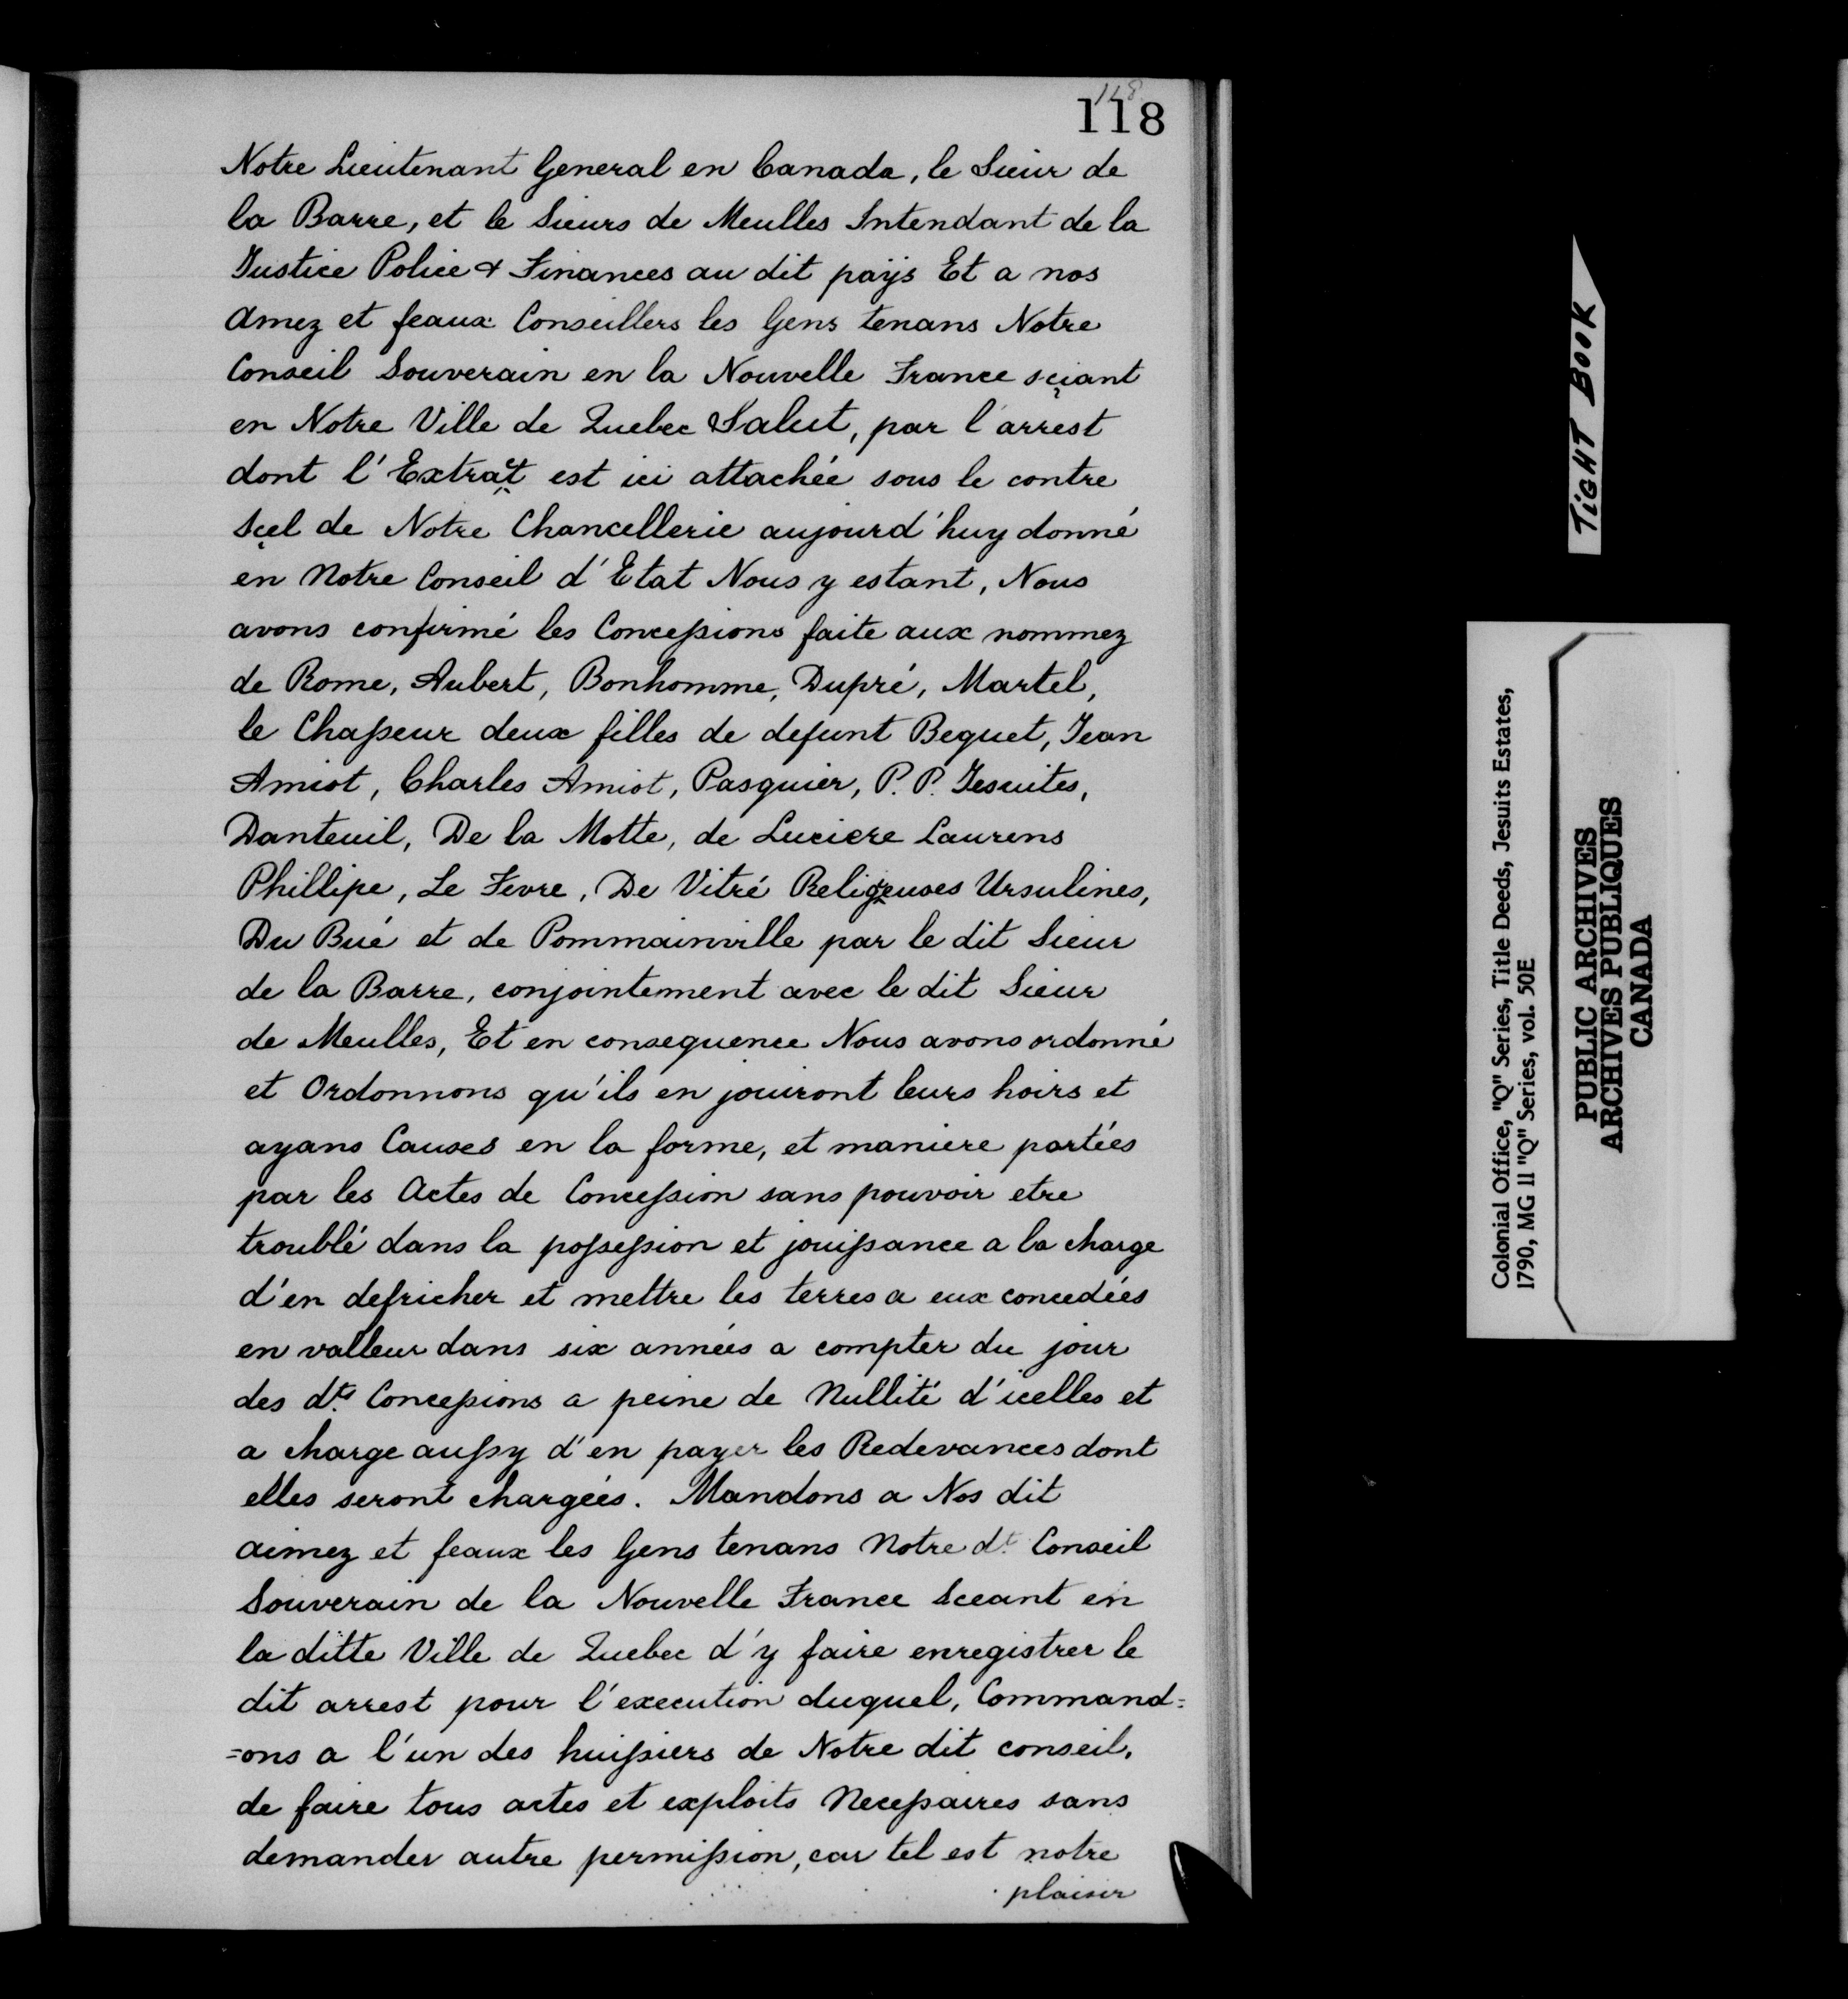 148
118
Notre Lieutenant General en Canada, le Sieur de
la Barre, et le Sieurs de Meulles Intendant de la
Justice Police & Finances au dit païs Et a nos
Amez et feaux Conseillers les Gens tenans Notre
Conseil Souverain en la Nouvelle France sçiant
en Notre Ville de Quebec Salut, par l'arrest
dont l'Extrait est ici attachée sous le contre
Sçel de Notre Chancellerie aujourd'huy donné
en Notre Conseil d'Etat Nous y estant, Nous
avons confirmé les Concessions faite aux nommez
de Rome, Aubert, Bonhomme, Dupré, Martel,
le Chasseur deux filles de defunt Bequet, Jean
Amiot, Charles Amiot, Pasquier, P. P. Jesuites,
Danteuil, De la Motte, de Luciere Laurens
Phillipe, Le Fevre, De Vitré Religeuses Ursulines,
Du Bué et de Pommainville par le dit Sieur
de la Barre, conjointement avec le dit Sieur
de Meulles, Et en consequence Nous avons ordonné
et Ordonnons qu'ils en jouiront leurs hoirs et
ayans Causes en la forme, et maniere portées
par les Actes de Concession sans pouvoir etre
troublé dans la possession et jouissance a la charge
d'en defricher et mettre les terres a eux concedées
en valleur dans six années a compter du jour
des dts Concessions a peine de Nullité d'icelles et
a charge aussy d'en payer les Redevances dont
elles seront chargées. Mandons a Nos dit
aimez et feaux les Gens tenans Notre dt Conseil
Souverain de la Nouvelle France Sceant en
la ditte Ville de Quebec d'y faire enregistrer le
dit arrest pour l'execution duquel, Command=
=ons a l'un des huissiers de Notre dit conseil,
de faire tous actes et exploits Necessaires sans
demander autre permission, car tel est notre
plaisir
TIGHT BOOK
Colonial Office, "Q" Series, Title Deeds, Jesuits Estates,
1790, MG 11 "Q" Series, vol. 50E
PUBLIC ARCHIVES
ARCHIVES PUBLIQUES
CANADA